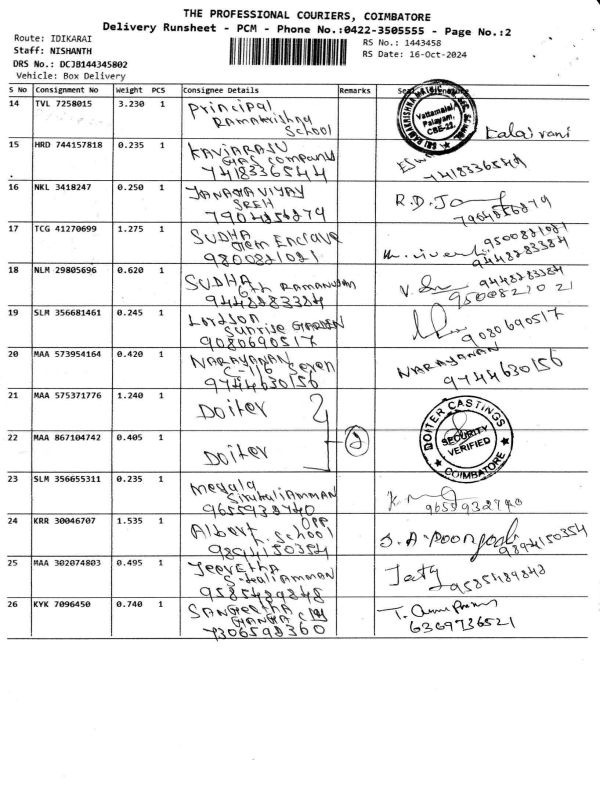 THE PROFESSIONAL COURIERS, COIMBATORE
Delivery Runsheet - PCM - Phone No.:0422-3505555 - Page No.:2
Route: IDIKARAI
RS No.: 1443458
Staff: NISHANTH
RS Date: 16-Oct-2024
DRS No.: DCJB144345802
Vehicle: Box Delivery
S No Consignment No Weight PCS Consignee Details Remarks
14 TVL 7258015 3.230 1 Principal
Ramakrishna
School
Vattamalai
Palayam,
CBE-22.
Kalaivani
15 HRD 744157818 0.235 1
GAS Company
7418336544
7418336542
16 NKL 3418247 0.250 1
7904856279
R.D.
7904856279
17 TCG 41270699 1.275 1 SUDHA
Gem Enclave
9500821021
9448283384
18 NLM 29805696 0.620 1 SUDHA
6th RAMANUJAM
9448283384
9448283384
9500821021
19 SLM 356681461 0.245 1
Sunrise GARDEN
9080690517
9080690517
20 MAA 573954164 0.420 1 NARAYANAN
C-116 Seven
9744630156
NARAYANAN
9744630156
21 MAA 575371776 1.240 1 Doiter
22 MAA 867104742 0.405 1 Doiter
2
DOITER CASTINGS
SECURITY
VERIFIED
COIMBATORE
23 SLM 356655311 0.235 1 Megala
9655932740
9655932740
24 KRR 30046707 1.535 1 Albert OPP
School
9894150354
9894150354
25 MAA 302074803 0.495 1 Jeevetha
9585489848
9585489848
26 KYK 7096450 0.740 1 SANGEETHA
GANGA
7306598360
6369736521